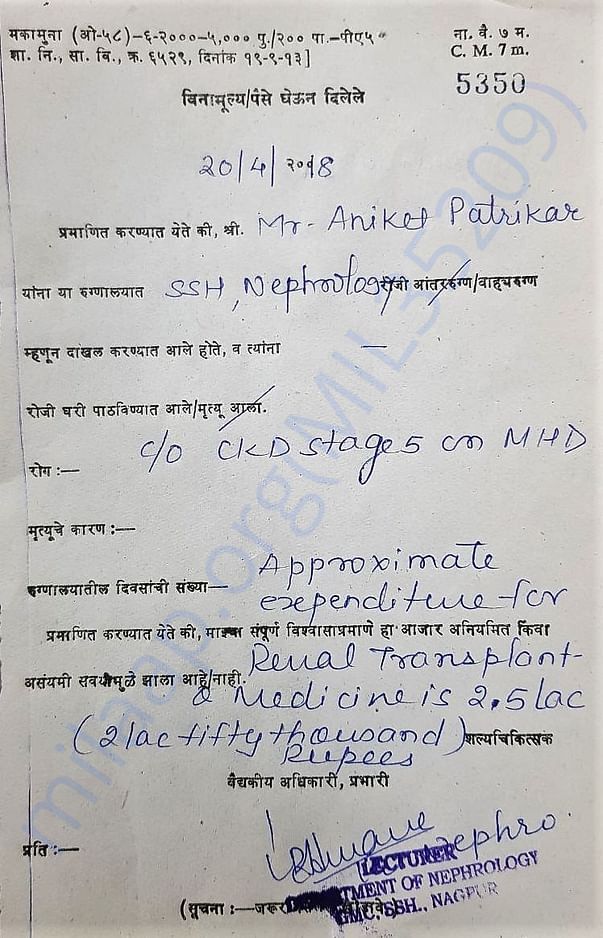 मकामुना (ओ-५८)-६-२०००-५,००० पु./२०० पा.-पीए५
शा. नि., सा. वि., क्र. ६५२९, दिनांक १९-९-१३]
ना. वै. ७ म.
C. M. 7 m.
5350
विनामूल्य/पैसे घेऊन दिलेले
20/4/२०18
प्रमाणित करण्यात येते की, श्री. Mr- Aniket Patrikar
यांना या रुग्णालयात SSH, Nephrology रोजी आंतररुग्ण/वाह्यरुग्ण
म्हणून दाखल करण्यात आले होते, व त्यांना —
रोजी घरी पाठविण्यात आले/मृत्यू आला.
रोग :— c/o CKD stage 5 on MHD
मृत्यूचे कारण :—
रुग्णालयातील दिवसांची संख्या— Approximate
expenditure for
प्रमाणित करण्यात येते की, माझ्या संपूर्ण विश्वासाप्रमाणे हा आजार अनियमित किंवा
असंयमी सवयीमुळे झाला आहे/नाही. Renal Transplant-
& Medicine is 2.5 lac
(2 lac fifty thousand) शल्यचिकित्सक
Rupees
वैद्यकीय अधिकारी, प्रभारी
प्रति :—
Nephro.
LECTURER
DEPARTMENT OF NEPHROLOGY
GMC, SSH., NAGPUR
(सूचना :—
milaap.org(MIL35209)